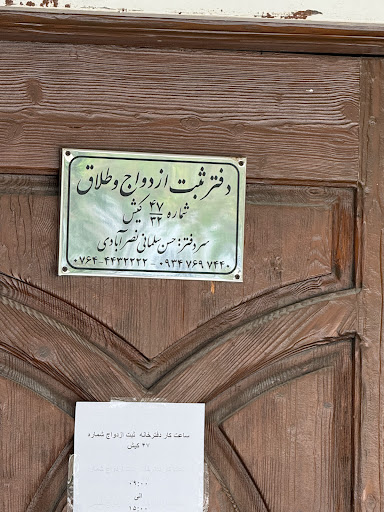 دفتر ثبت ازدواج و طلاق
شماره ۴۷/۳۲ کیش
سردفتر: حسن سلمانی نصرآبادی
۰۷۶۴-۴۴۳۲۲۲۲ - ۰۹۳۴ ۷۶۹ ۷۴۴۰
ساعت کار دفترخانه ثبت ازدواج شماره
۴۷ کیش
۰۹:۰۰
الی
۱۵:۰۰